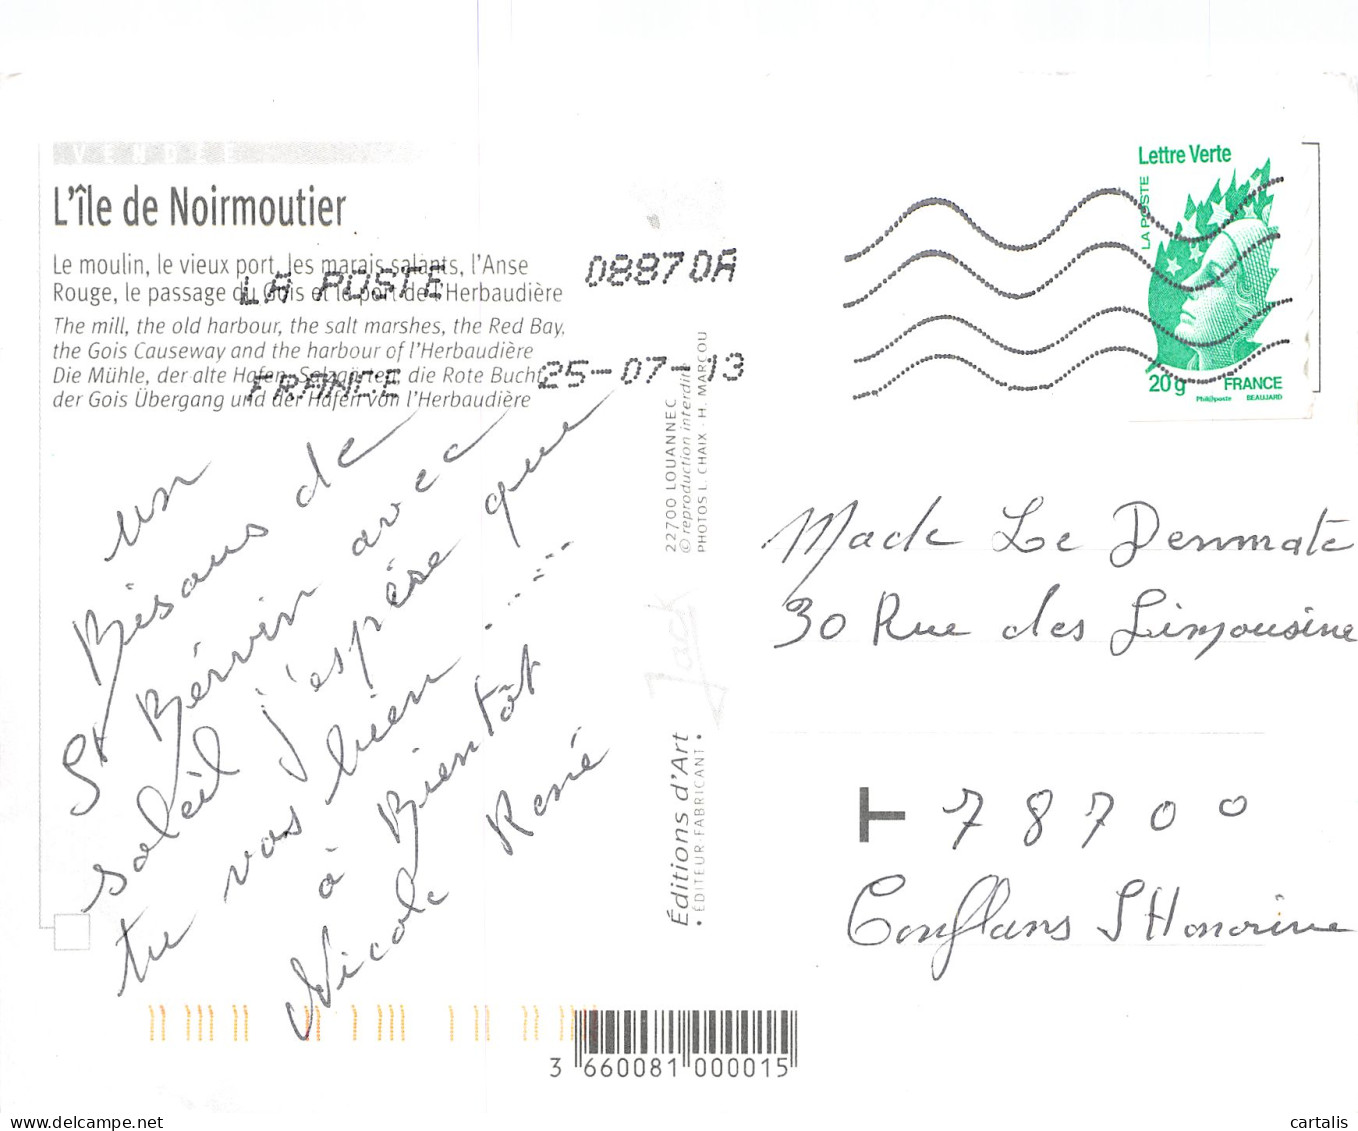 VENDÉE
L'île de Noirmoutier
Le moulin, le vieux port, les marais salants, l'Anse
Rouge, le passage du Gois et le port de l'Herbaudière
The mill, the old harbour, the salt marshes, the Red Bay,
the Gois Causeway and the harbour of l'Herbaudière
Die Mühle, der alte Hafen, Salzgärten, die Rote Bucht,
der Gois Übergang und der Hafen von l'Herbaudière
LA POSTE
FRANCE
08870A
25-07-13
un
Bisous de
St Bérvin avec
soleil j'espère que
tu vas bien .....
à Bientôt
Nicole René
22700 LOUANNEC
© reproduction interdite
PHOTOS L. CHAIX - H. MARCOU
Jack
Éditions d'Art
• ÉDITEUR-FABRICANT •
Lettre Verte
LA POSTE
20g FRANCE
Phil@poste BEAUJARD
Made Le Denmate
30 Rue des Limousine
T 78700
Conflans St Honorine
3 660081 000015
cartalis
delcampe.net